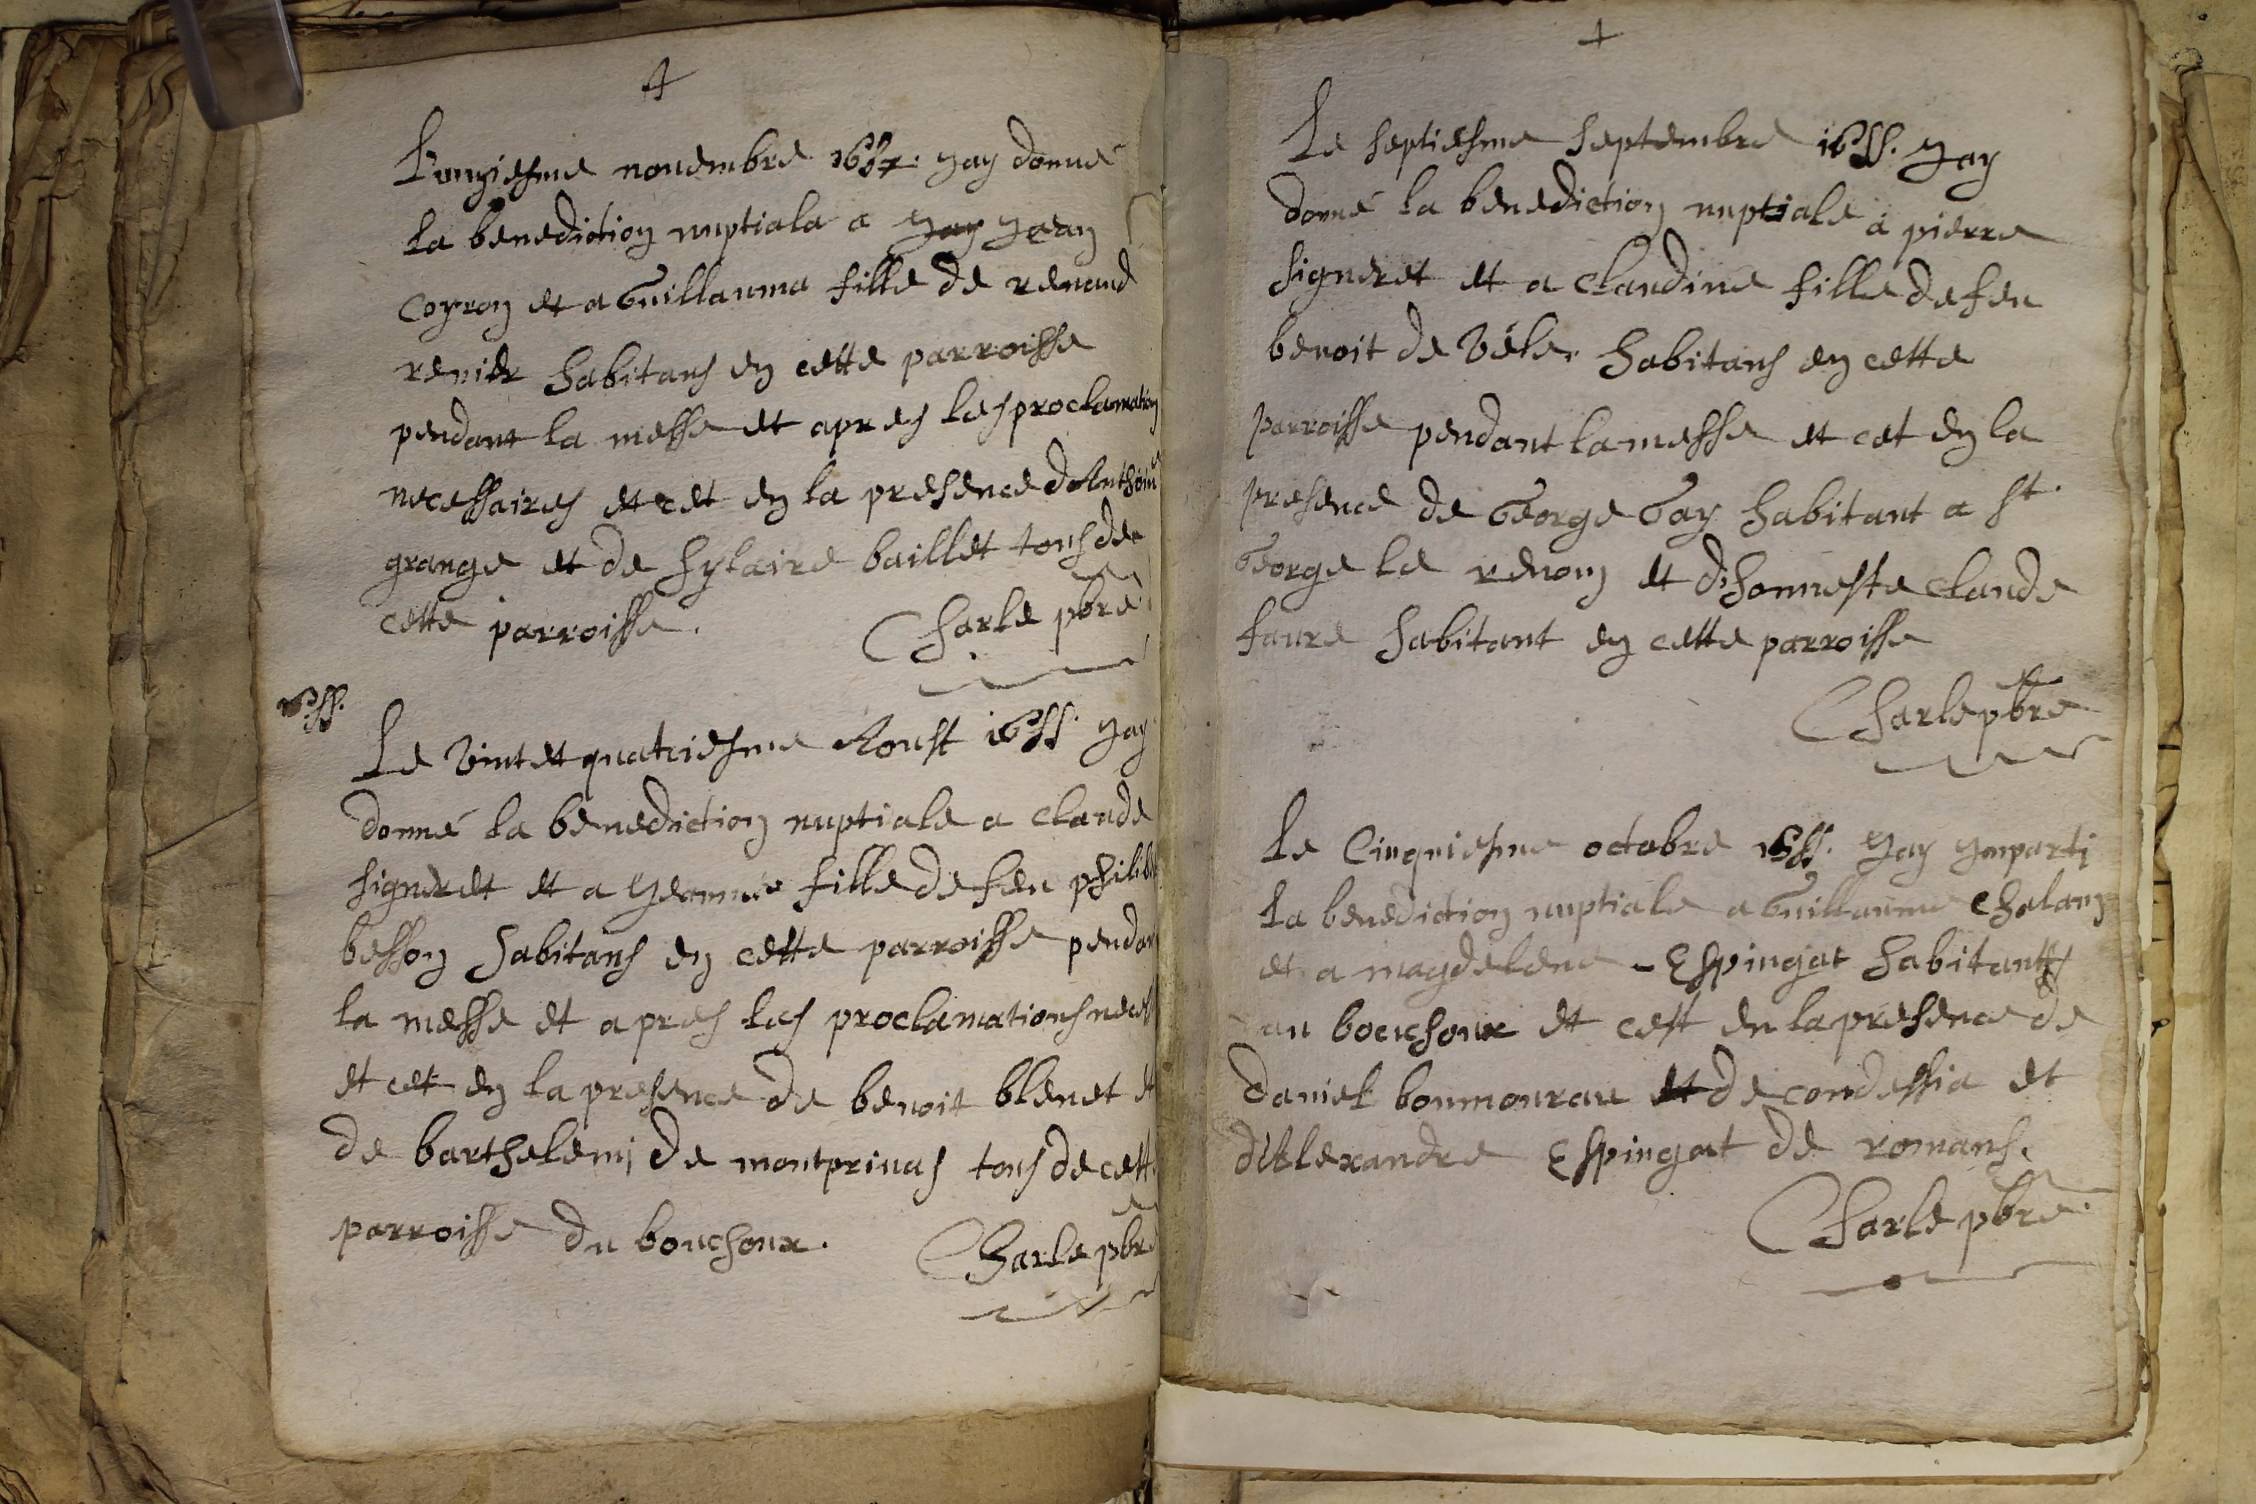 L'unziesme novembre 1654. Jay donné
la benediction nuptiala a Jay Jean
Coyron et a Guillauma fille de renaud
renier habitans en cette parroisse
pendant la messe et apres les proclamation
necessaires et cet en la presence d'Anthoine
grange et de hylaire baillet tous de
cette parroisse.
Charle pbre
1655.
Le vint et quatriesme Aoust 1655. Jay
donné la benediction nuptiale a Claude
signeret et a Jeanne fille de feu philib
besson habitans en cette parroisse pendan
la messe et apres les proclamations necess
et cet en la presence de benoit blenet et
de barthelemi de montprivas tous de cette
parroisse du bouchoux.
Charle pbre
Le septiesme septembre 1655. Jay
donné la benediction nuptiale a pierre
signeret et a Claudine fille de feu
benoit de Véle. habitans en cette
parroisse pendant la messe et cet en la
presence de George Gay habitant a St.
George le renom et d'honneste Claude
faure habitant en cette parroisse
Charle pbre
Le Cinquiesme octobre 1655. Jay Imparti
la benediction nuptiale a Guillaume Chalan
et a magdelene Espingat habitants
au bouchoux et cest en la presence de
daniel bonmourau et de condessia et
d'Alexandre Espingat de romans.
Charle pbre